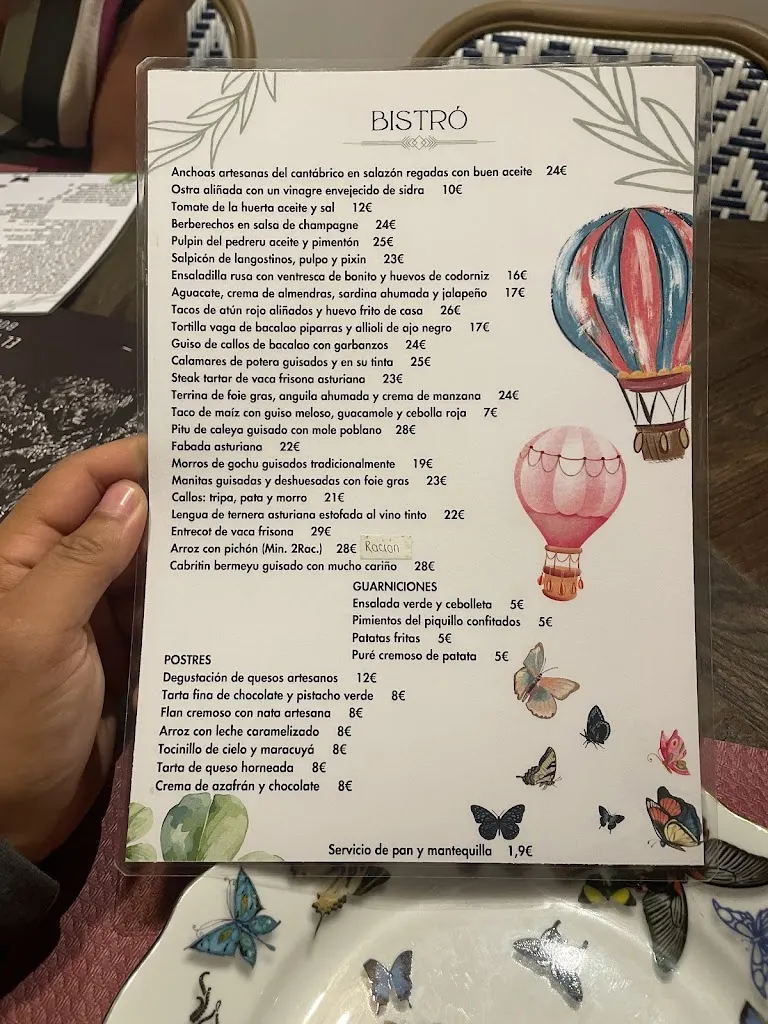 BISTRÓ
Anchoas artesanas del cantábrico en salazón regadas con buen aceite 24€
Ostra aliñada con un vinagre envejecido de sidra 10€
Tomate de la huerta aceite y sal 12€
Berberechos en salsa de champagne 24€
Pulpin del pedreru aceite y pimentón 25€
Salpicón de langostinos, pulpo y pixín 23€
Ensaladilla rusa con ventresca de bonito y huevos de codorniz 16€
Aguacate, crema de almendras, sardina ahumada y jalapeño 17€
Tacos de atún rojo aliñados y huevo frito de casa 26€
Tortilla vaga de bacalao piparras y allioli de ajo negro 17€
Guiso de callos de bacalao con garbanzos 24€
Calamares de potera guisados y en su tinta 25€
Steak tartar de vaca frisona asturiana 23€
Terrina de foie gras, anguila ahumada y crema de manzana 24€
Taco de maíz con guiso meloso, guacamole y cebolla roja 7€
Pitu de caleya guisado con mole poblano 28€
Fabada asturiana 22€
Morros de gochu guisados tradicionalmente 19€
Manitas guisadas y deshuesadas con foie gras 23€
Callos: tripa, pata y morro 21€
Lengua de ternera asturiana estofada al vino tinto 22€
Entrecot de vaca frisona 29€
Arroz con pichón (Min. 2Rac.) 28€ Racion
Cabritin bermeyu guisado con mucho cariño 28€
GUARNICIONES
Ensalada verde y cebolleta 5€
Pimientos del piquillo confitados 5€
Patatas fritas 5€
Puré cremoso de patata 5€
POSTRES
Degustación de quesos artesanos 12€
Tarta fina de chocolate y pistacho verde 8€
Flan cremoso con nata artesana 8€
Arroz con leche caramelizado 8€
Tocinillo de cielo y maracuyá 8€
Tarta de queso horneada 8€
Crema de azafrán y chocolate 8€
Servicio de pan y mantequilla 1,9€